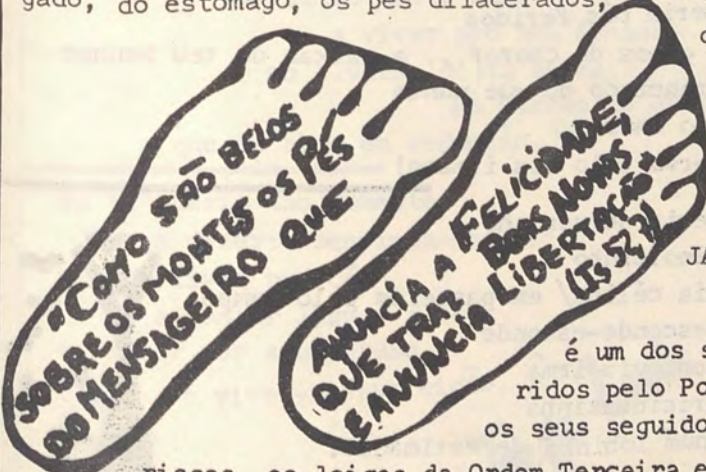 gado, do estômago, os pés dilacerados,
"COMO SÃO BELOS
SOBRE OS MONTES OS PÉS
DO MENSAGEIRO QUE
ANUNCIA A FELICIDADE,
QUE TRAZ BOAS NOVAS
E ANUNCIA LIBERTAÇÃO"
(Is 52,7)
é um dos s
ridos pelo Po
os seus seguido
os leigos da Ordem Terceira e